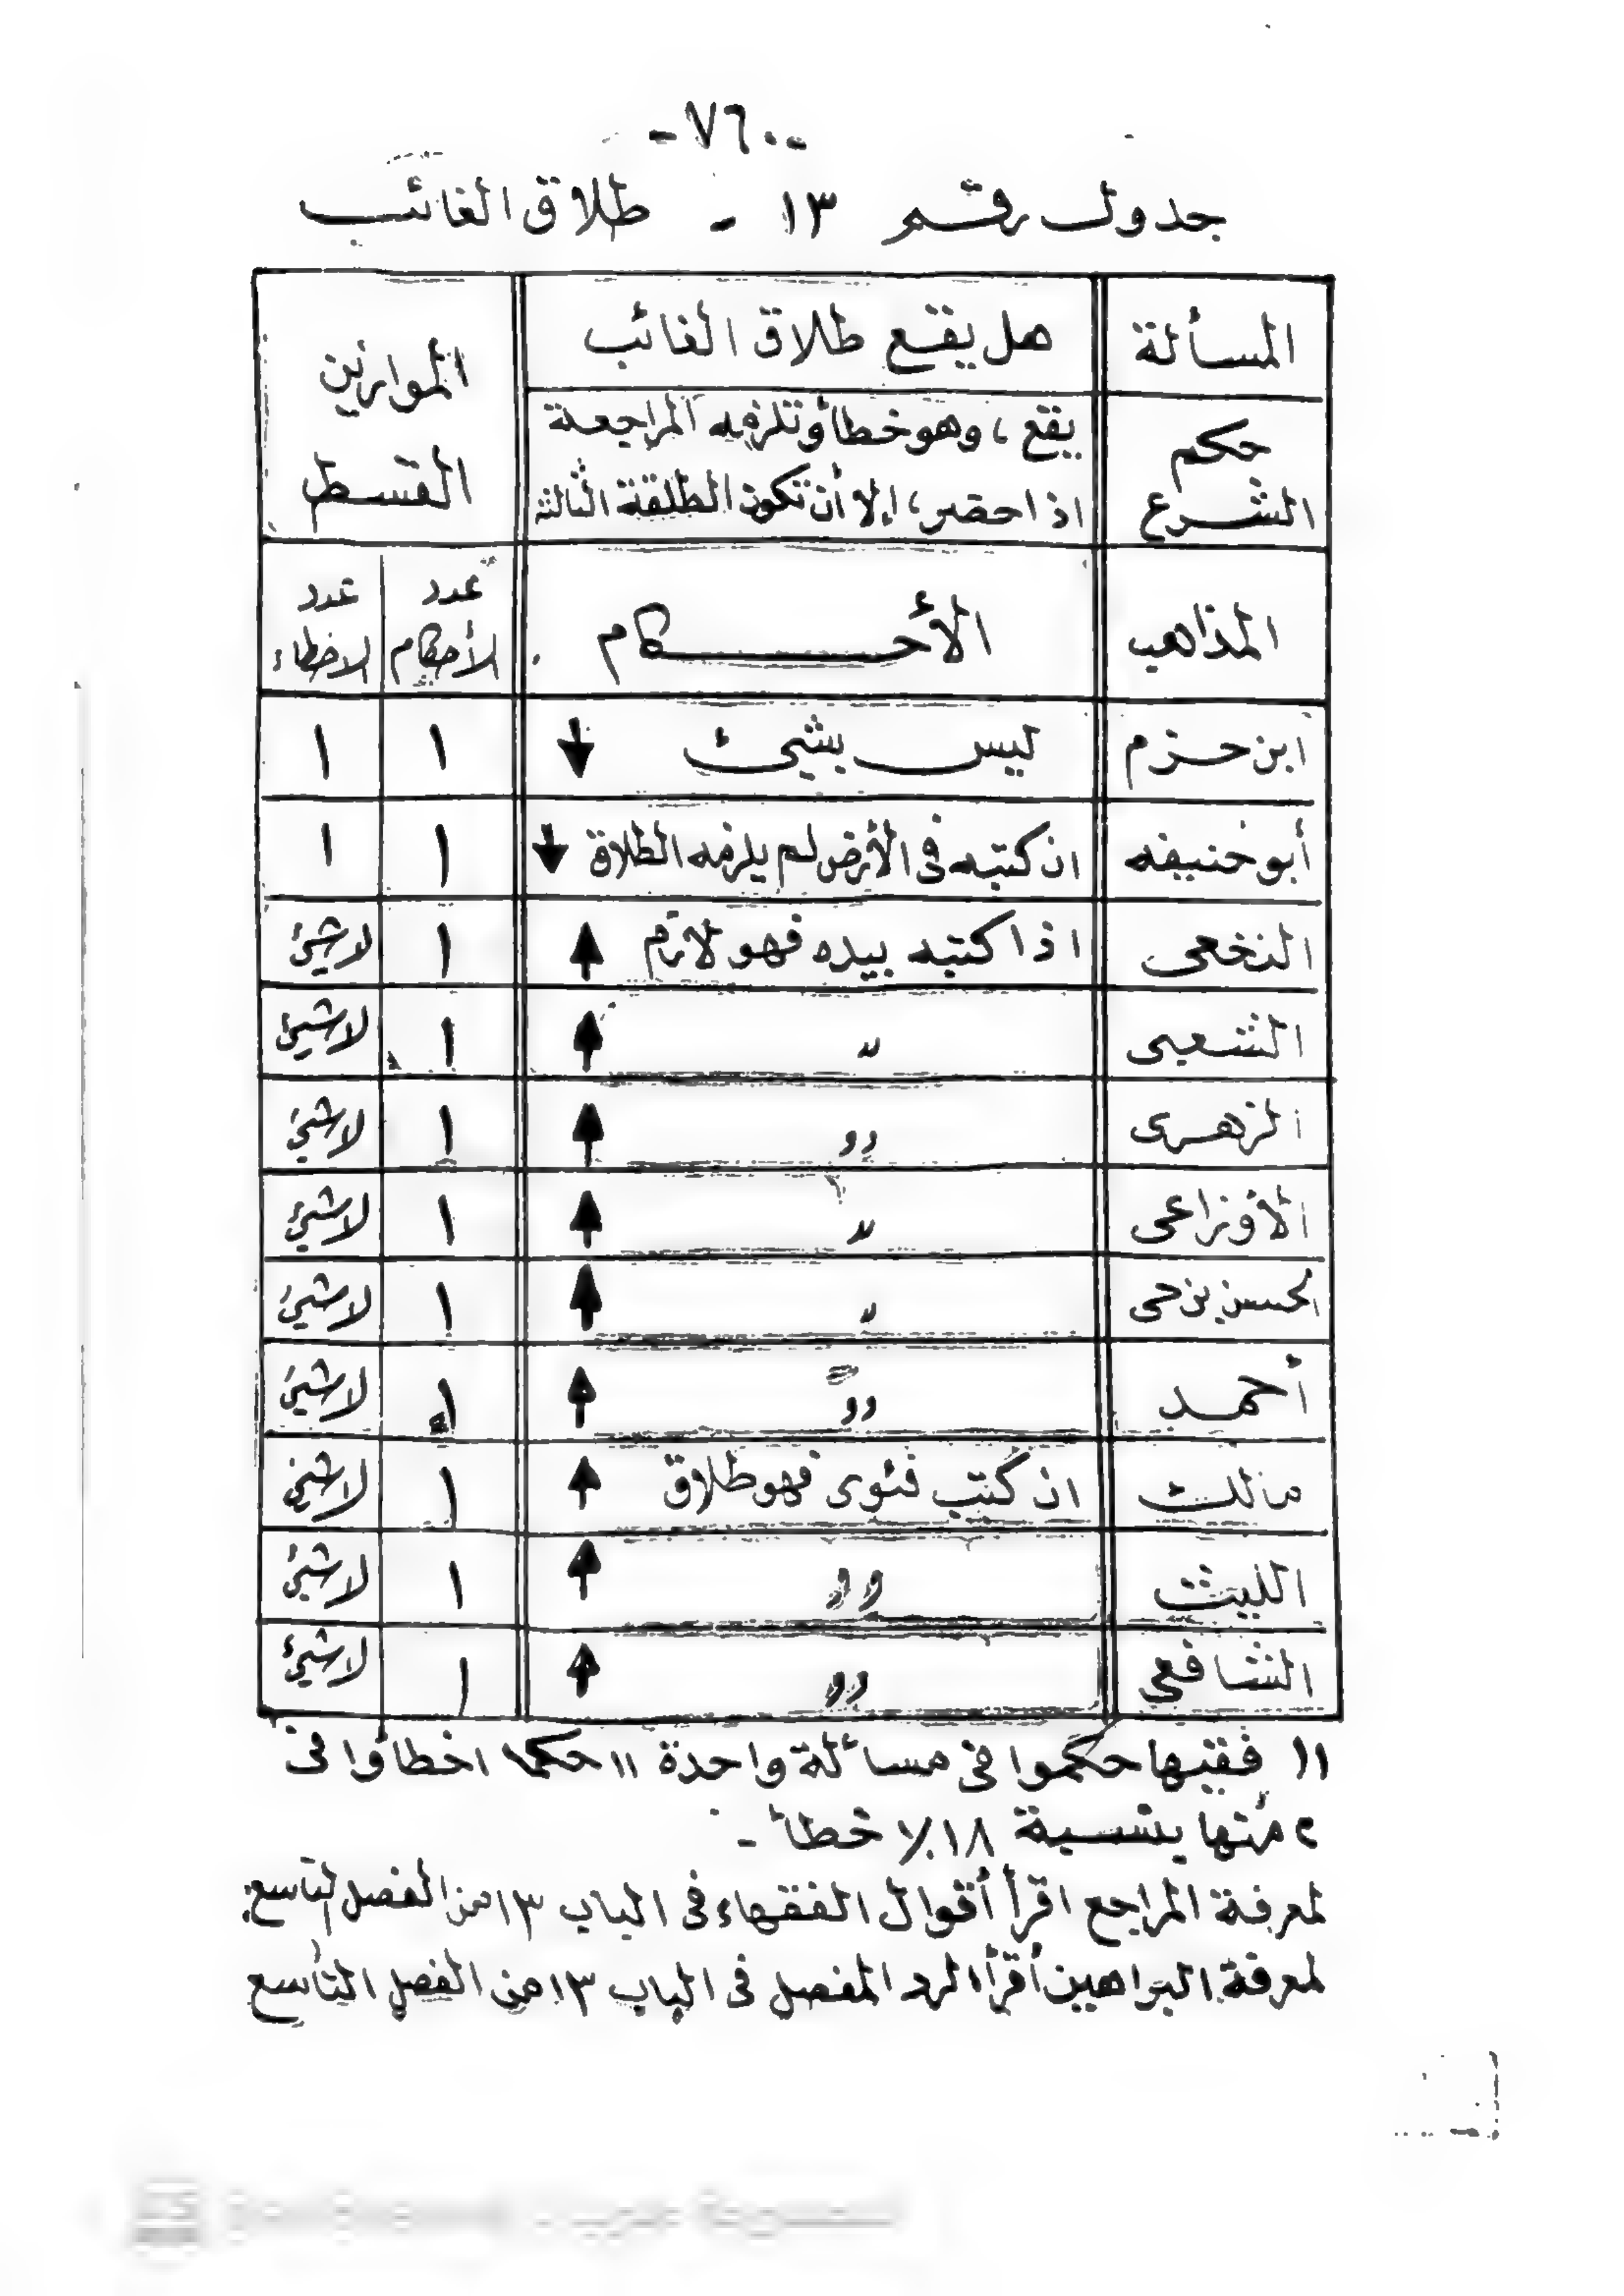 -٧٦٠-
جدول رقم ١٣ - طلاق الغائب
المسألة هل يقع طلاق الغائب الموازين القسط
حكم الشرع يقع، وهو خطأ وتلزمه المراجعة
اذا حضر، إلا أن تكون الطلقة الثالثة
المذاهب الأحكام عدد الأحكام عدد الاخطاء
ابن حزم ليس بشيئ ↓ ١ ١
أبو حنيفه ان كتبه في الأرض لم يلزمه الطلاق ↓ ١ ١
النخعى اذا كتبه بيده فهو لازم ↑ ١ لاشيئ
الشعبى " ↑ ١ لاشيئ
الزهرى " ↑ ١ لاشيئ
الأوزاعى " ↑ ١ لاشيئ
الحسن بن حى " ↑ ١ لاشيئ
أحمد " ↑ ١ لاشيئ
مالك ان كتب فنوى فهو طلاق ↑ ١ لاشيئ
الليث " ↑ ١ لاشيئ
الشافعي " ↑ ١ لاشيئ
١١ فقيها حكموا في مسألة واحدة ١١ حكما اخطأوا في
٢ منها بنسبة ١٨٪ خطأ -
لمعرفة المراجع اقرأ أقوال الفقهاء في الباب ١٣ من الفصل التاسع
لمعرفة البراهين أقرأ الرد المفصل في الباب ١٣ من الفصل التاسع